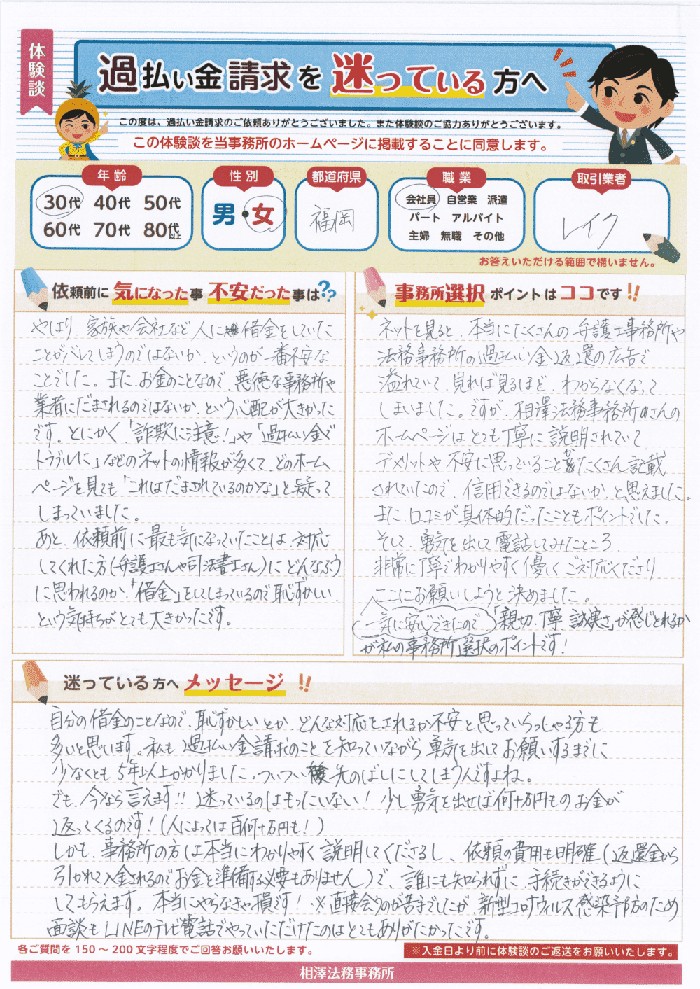 体験談
過払い金請求を迷っている方へ
この度は、過払い金請求のご依頼ありがとうございました。また体験談のご協力ありがとうございます。
この体験談を当事務所のホームページに掲載することに同意します。
年齢
30代 40代 50代
60代 70代 80代以上
性別
男・女
都道府県
福岡
職業
会社員 自営業 派遣
パート アルバイト
主婦 無職 その他
取引業者
レイク
お答えいただける範囲で構いません。
依頼前に気になった事 不安だった事は??
やはり、家族や会社など人に借金をしていた
ことがバレてしまうのではないか、というのが一番不安な
ことでした。また、お金のことなので、悪徳な事務所や
業者にだまされるのではないか、という心配が大きかった
です。とにかく「詐欺に注意!」や「過払い金で
トラブルに」などのネットの情報が多くて、どのホーム
ページを見ても「これはだまされているのかな」と疑って
しまっていました。
あと、依頼前に最も気になっていたことは、対応
してくれた方(弁護士さんや司法書士さん)にどんなふう
に思われるのか、「借金」をしてしまっているので恥ずかしい
という気持ちがとても大きかったです。
事務所選択ポイントはココです!!
ネットを見ると、本当にたくさんの弁護士事務所や
法務事務所の過払い金返還の広告で
溢れていて、見れば見るほど、わからなくなって
しまいました。ですが、相澤法務事務所さんの
ホームページはとても丁寧に説明されていて
デメリットや不安に思っていることがたくさん記載
されていたので、信用できるのではないか、と思えました。
また、口コミが具体的だったこともポイントでした。
そして、勇気を出して電話してみたところ、
非常に丁寧でわかりやすく優しくご対応くださり
ここにお願いしようと決めました。
一気に安心できたので「親切、丁寧、誠実さ」が感じとれるか
が私の事務所選択のポイントです!
迷っている方へメッセージ!!
自分の借金のことなので、恥ずかしいとか、どんな対応をされるか不安と思っていらっしゃる方も
多いと思います。私も過払い金請求のことを知っていながら勇気を出してお願いするまでに
少なくとも5年以上かかりました。ついつい後先のばしにしてしまうんですよね。
でも、今なら言えます!! 迷っているのはもったいない! 少し勇気を出せば何十万円ものお金が
返ってくるのです!(人によっては百何十万円も!)
しかも、事務所の方は本当にわかりやすく説明してくださるし、依頼の費用も明確(返還金から
引かれて入金されるのでお金を準備する必要もありません)で、誰にも知られずに手続きができるように
してもらえます。本当にやらなきゃ損です! ※直接会うのが苦手でしたが、新型コロナウイルス感染予防のため
面談もLINEのテレビ電話でやっていただけたのはとてもありがたかったです。
各ご質問を150～200文字程度でご回答お願いいたします。
※入金日より前に体験談のご返送をお願いいたします。
相澤法務事務所